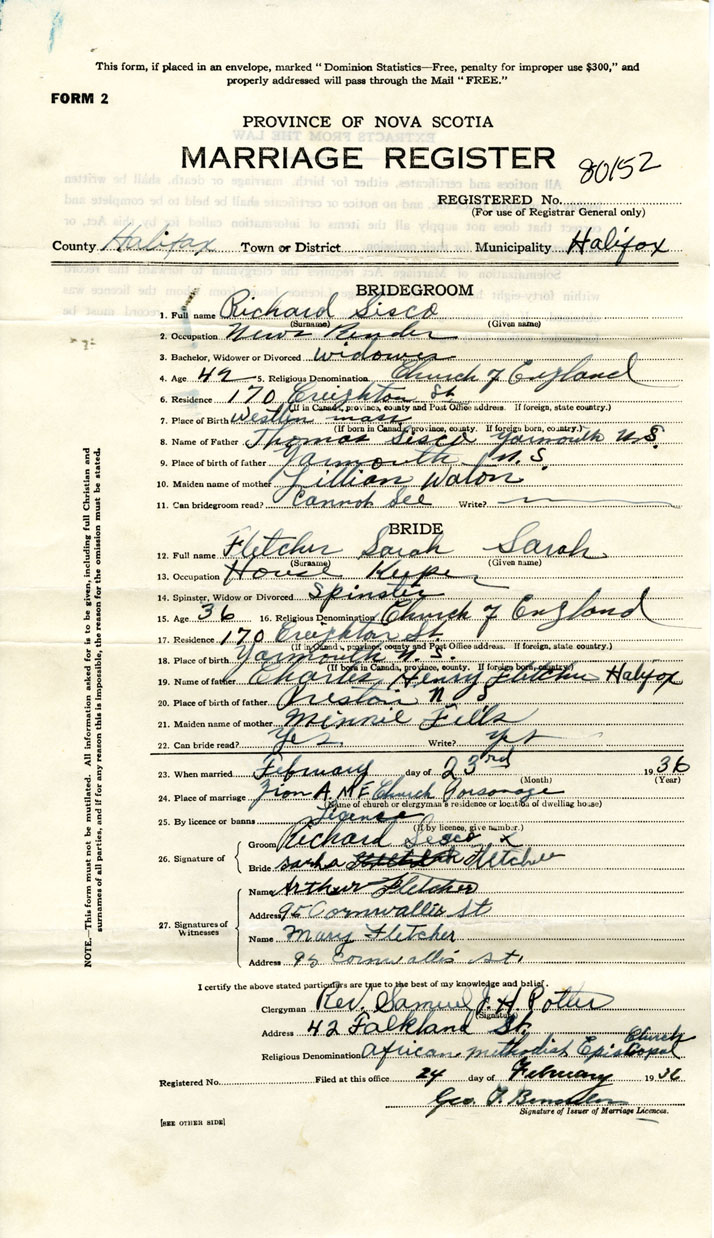 This form, if placed in an envelope, marked "Dominion Statistics—Free, penalty for improper use $300," and
properly addressed will pass through the Mail "FREE."
FORM 2
PROVINCE OF NOVA SCOTIA
MARRIAGE REGISTER
80152
REGISTERED No.
(For use of Registrar General only)
County Halifax Town or District Municipality Halifax
BRIDEGROOM
1. Full name Richard Sisco
(Surname) (Given name)
2. Occupation News
3. Bachelor, Widower or Divorced widower
4. Age 42 5. Religious Denomination Church of England
6. Residence 170 Creighton St
(If in Canada, province, county and Post Office address. If foreign, state country.)
7. Place of Birth mass
(If born in Canada, province, county. If foreign born, country.)
8. Name of Father Thomas Sisco Yarmouth N.S.
9. Place of birth of father Yarmouth N.S.
10. Maiden name of mother Lillian Waton
11. Can bridegroom read? Cannot See Write?
BRIDE
12. Full name Fletcher Sarah Sarah
(Surname) (Given name)
13. Occupation House Keeper
14. Spinster, Widow or Divorced Spinster
15. Age 36 16. Religious Denomination Church of England
17. Residence 170 Creighton St
(If in Canada, province, county and Post Office address. If foreign, state country.)
18. Place of birth Yarmouth N.S.
(If born in Canada, province, county. If foreign born, country.)
19. Name of father Charles Henry Fletcher Halifax
20. Place of birth of father Preston N S
21. Maiden name of mother Minnie Fills
22. Can bride read? Yes. Write? yes
23. When married February day of 23rd 1936
(Month) (Year)
24. Place of marriage Zion A.M.E Church Parsonage
(Name of church or clergyman's residence or location of dwelling house)
25. By licence or banns License
(If by licence, give number.)
26. Signature of
Groom Richard Sesco X
Bride Sarha Fletcher
27. Signatures of Witnesses
Name Arthur Fletcher
Address 95 Cornwallis St
Name Mary Fletcher
Address 95 Cornwallis St.
I certify the above stated particulars are true to the best of my knowledge and belief.
Clergyman Rev. Samuel J. H. Potter
(Signature)
Address 42 Falkland St.
Religious Denomination African Methodist Episcopal Church
Registered No. Filed at this office 24 day of February 1936
Geo. F.
Signature of Issuer of Marriage Licences.
[SEE OTHER SIDE]
NOTE.—This form must not be mutilated. All information asked for is to be given, including full Christian and
surnames of all parties, and if for any reason this is impossible, the reason for the omission must be stated.